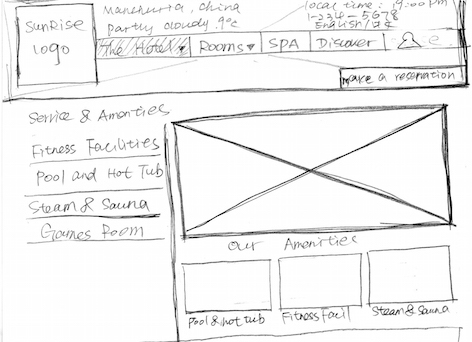 SunRise
logo
Manchuria, China
Partly cloudy .9°c
local time: 19:00 pm
1-234-5678
English/日本
The Hotel
Rooms▾
SPA
Discover
make a reservation
Service & Amenties
Fitness Facilities
Pool and Hot Tub
Steam & Sauna
Games Room
Our Amenities
Pool & hot tub
Fitness Facil
Steam & Sauna